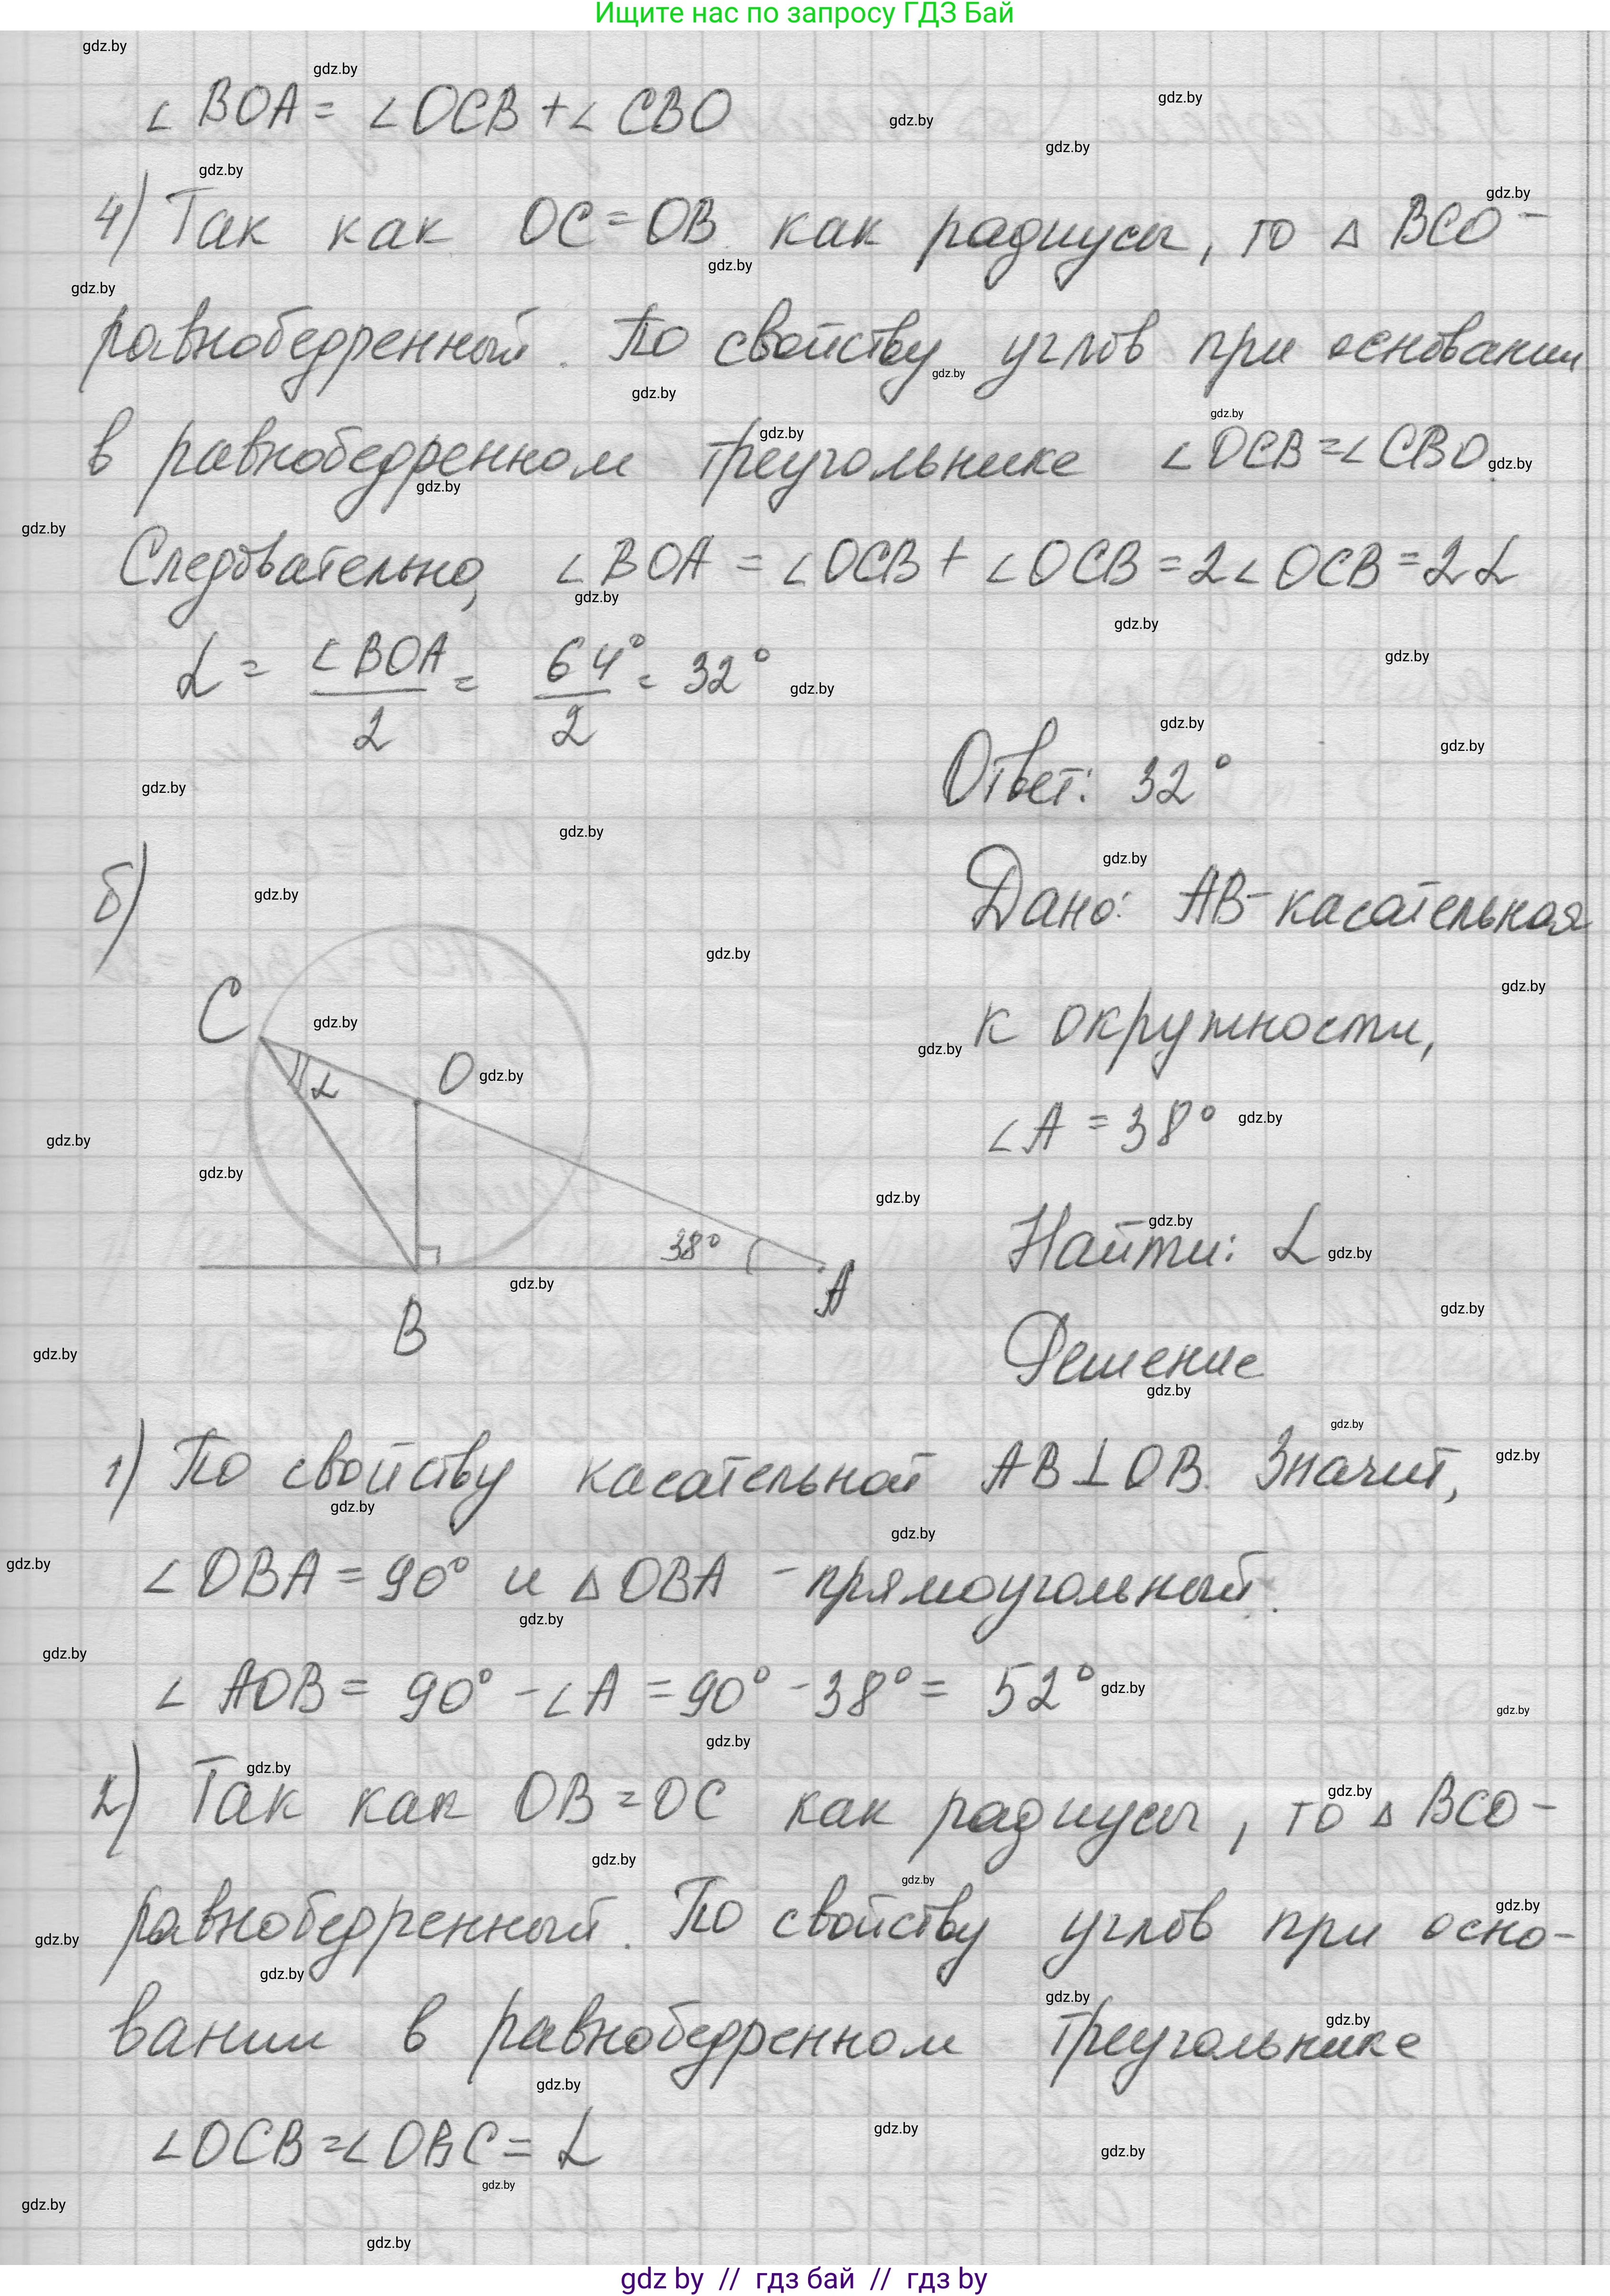 Ищите нас по запросу ГДЗ Бай
∠BOA = ∠OCB + ∠CBO
4) Так как OC = OB как радиусы, то △ BCO -
равнобедренный. По свойству углов при основании
в равнобедренном треугольнике ∠OCB = ∠CBO.
Следовательно, ∠BOA = ∠OCB + ∠OCB = 2∠OCB = 2α
α = ∠BOA/2 = 64°/2 = 32°
Ответ: 32°
б)
Дано: AB - касательная
к окружности,
∠A = 38°
Найти: α
Решение
C
O
α
38°
B
A
1) По свойству касательной AB ⊥ OB. Значит,
∠OBA = 90° и △OBA - прямоугольный.
∠AOB = 90° - ∠A = 90° - 38° = 52°
2) Так как OB = OC как радиусы, то △ BCO -
равнобедренный. По свойству углов при осно-
вании в равнобедренном треугольнике
∠OCB = ∠OBC = α
gdz by // гдз бай // гдз by